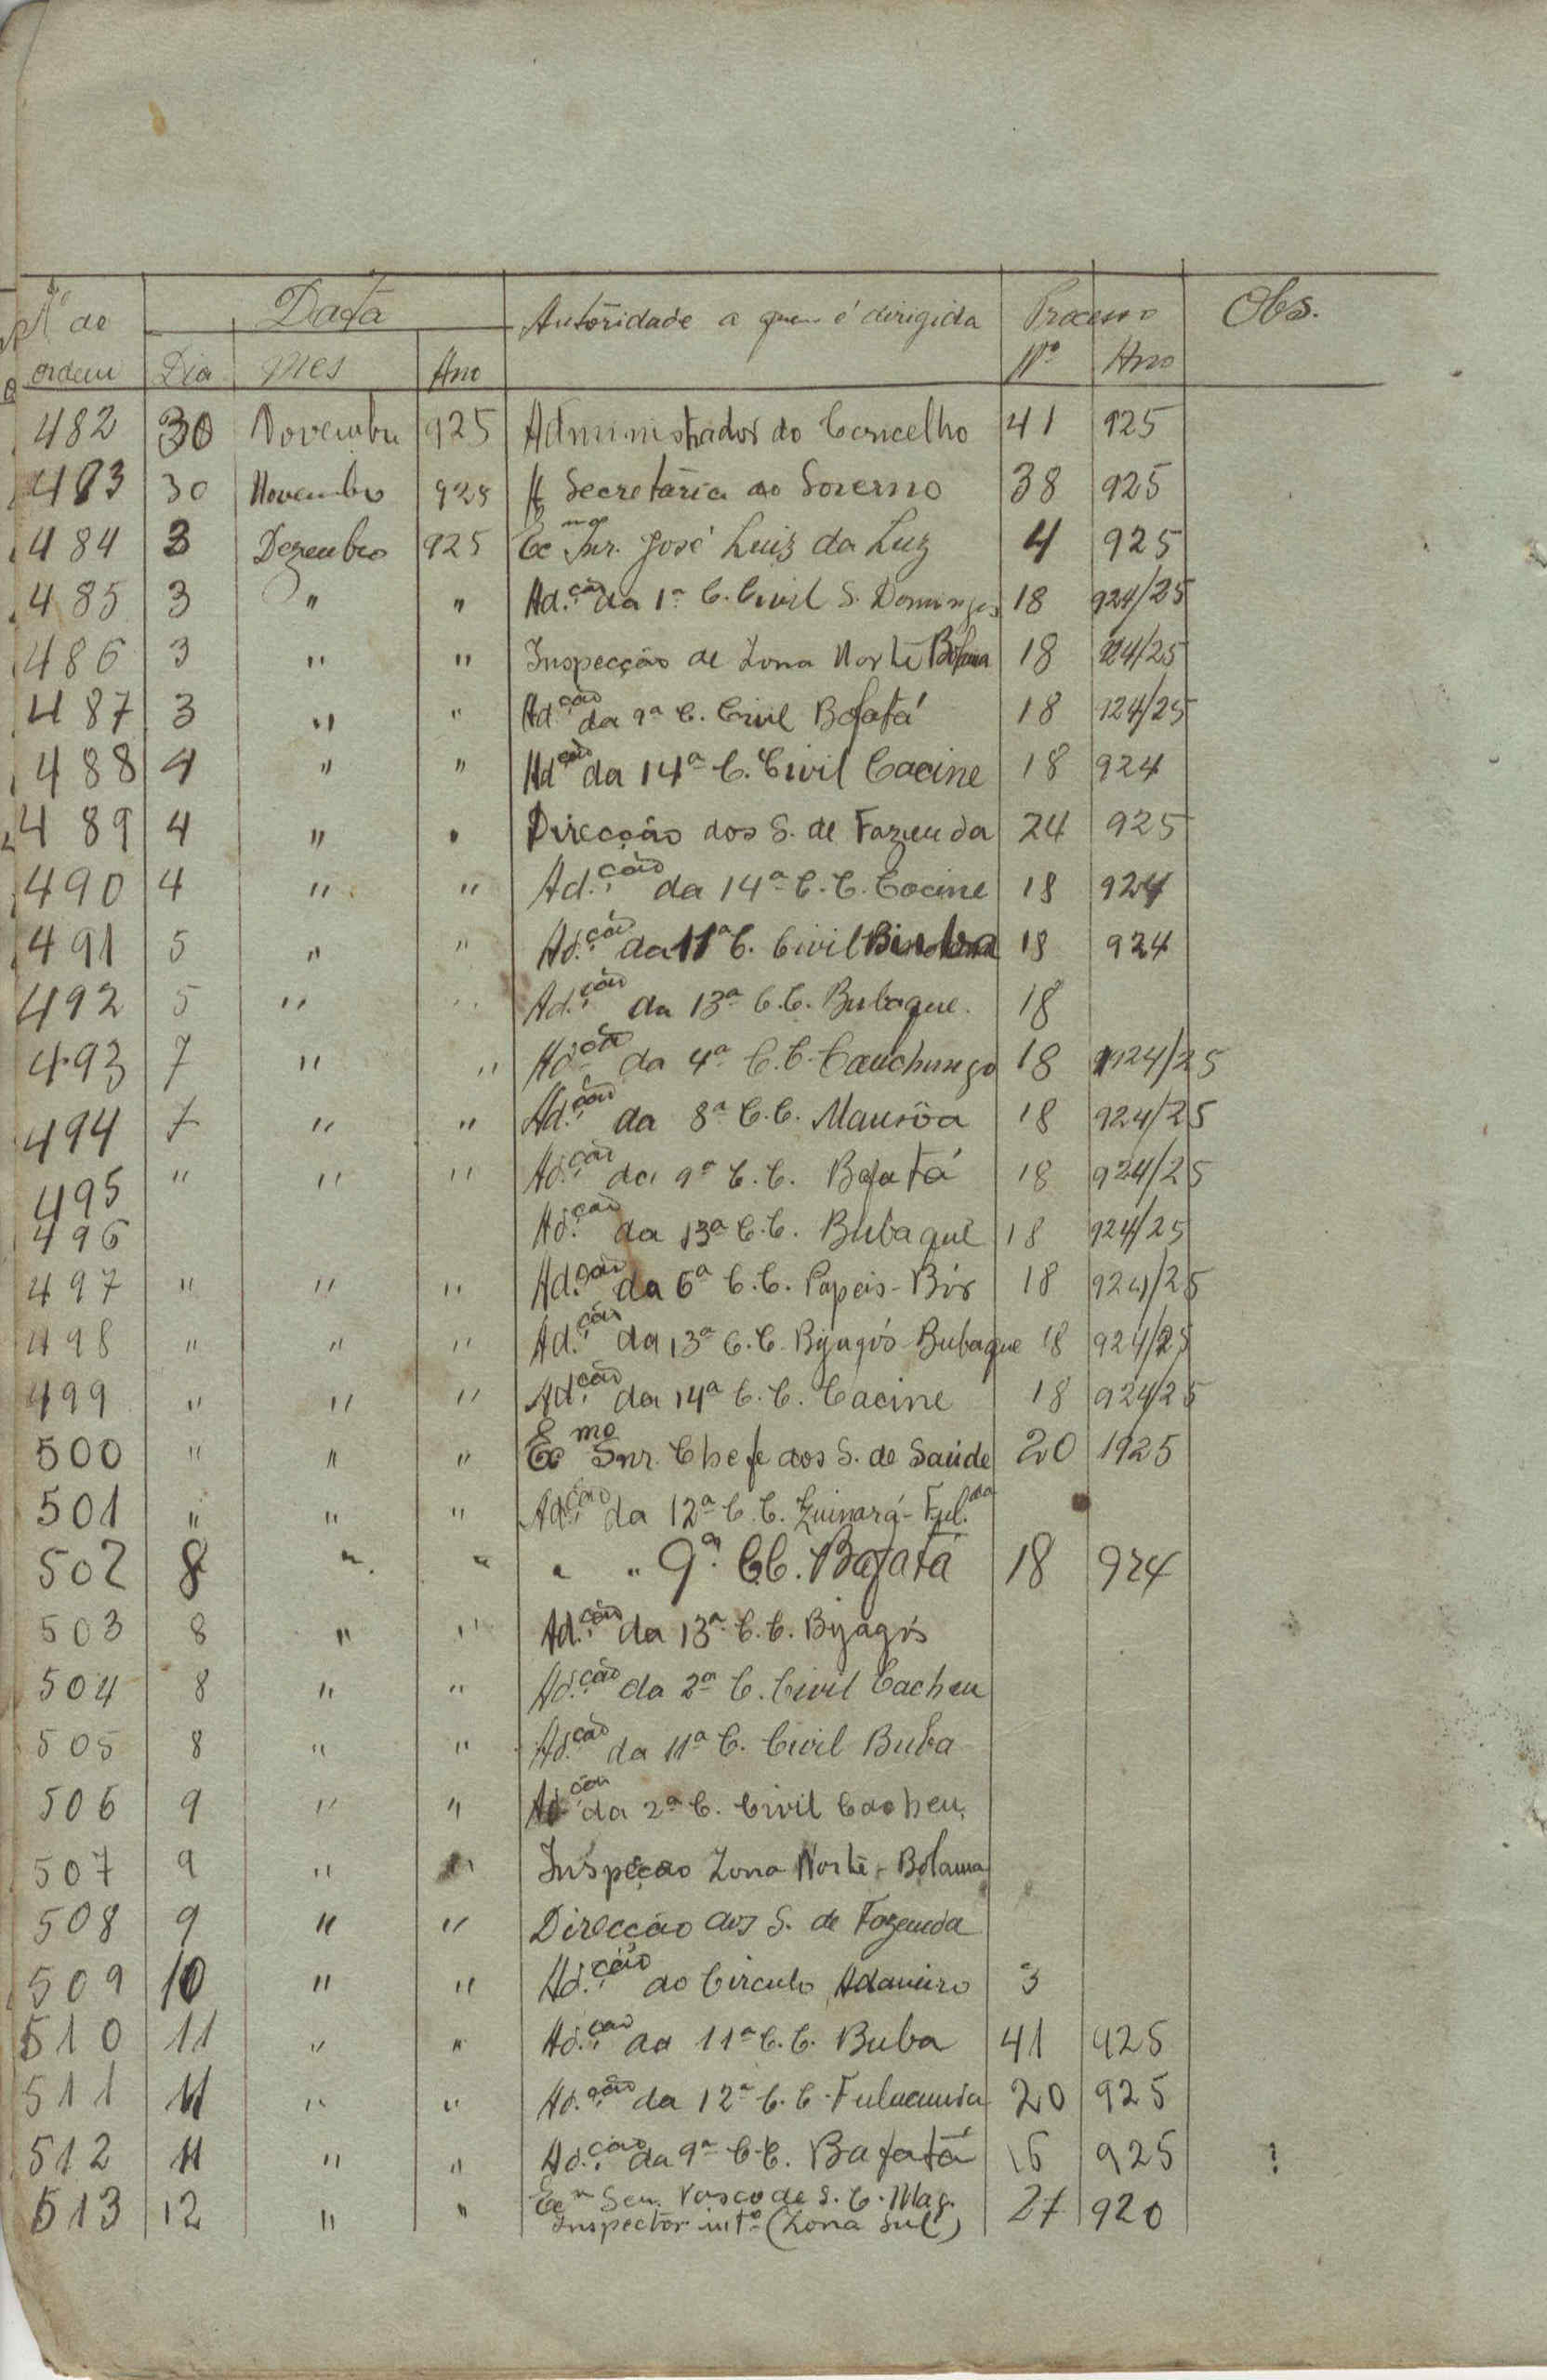 Nº de ordem Data Autoridade a quem é dirigida Processo Obs.
Dia Mês Ano Nº Ano
482 30 Novembro 925 Administrador do Concelho 41 925
483 30 Novembro 925 Secretaria do Governo 38 925
484 3 Dezembro 925 Exmo Snr. José Luiz da Luz 4 925
485 3 " " Ad.ção da 1ª C. Civil S. Domingos 18 924/25
486 3 " " Inspecção de Zona Norte Bolama 18 924/25
487 3 " " Ad.ção da 9ª C. Civil Bafatá 18 924/25
488 4 " " Adção da 14ª C. Civil Cacine 18 924
489 4 " " Direcção dos S. de Fazenda 24 925
490 4 " " Ad.ção da 14ª C. C. Cacine 18 924
491 5 " " Ad.ção da 11ª C. Civil 18 924
492 5 " " Ad.ção da 13ª C.C. Bubaque. 18
493 7 " " Ad.ção da 4ª C.C. Canchungo 18 1924/25
494 7 " " Ad.ção da 8ª C.C. Mansôa 18 924/25
495 " " " Ad.ção da 9ª C.C. Bafatá 18 924/25
496 Ad.ção da 13ª C.C. Bubaque 18 924/25
497 " " " Ad.ção da 6ª C.C. Papeis - Bôr 18 924/25
498 " " " Ad.ção da 13ª C.C. Bijagós Bubaque 18 924/25
499 " " " Ad.ção da 14ª C.C. Cacine 18 924/25
500 " " " Exmo Snr. Chefe dos S. de Saúde 20 1925
501 " " " Ad.ção da 12ª C.C. Quinará - Ful.da
502 8 " " " " 9ª CC. Bafatá 18 924
503 8 " " Ad.ção da 13ª C.C. Bijagós
504 8 " " Ad.ção da 2ª C. Civil Cacheu
505 8 " " Ad.ção da 11ª C. Civil Buba
506 9 " " Adção da 2ª C. Civil Cacheu.
507 9 " " Inspeção Zona Norte - Bolama
508 9 " " Direcção dos S. de Fazenda
509 10 " " Ad.ção do Circulo Adaneiro 3
510 11 " " Ad.ção da 11ª C.C. Buba 41 925
511 11 " " Ad.ção da 12ª C.C. Fulacunda 20 925
512 11 " " Ad.ção da 9ª C.C. Bafatá 16 925
513 12 " " Vasco de S. C. Mag. 27 920
Inspector intº (Zona Sul)